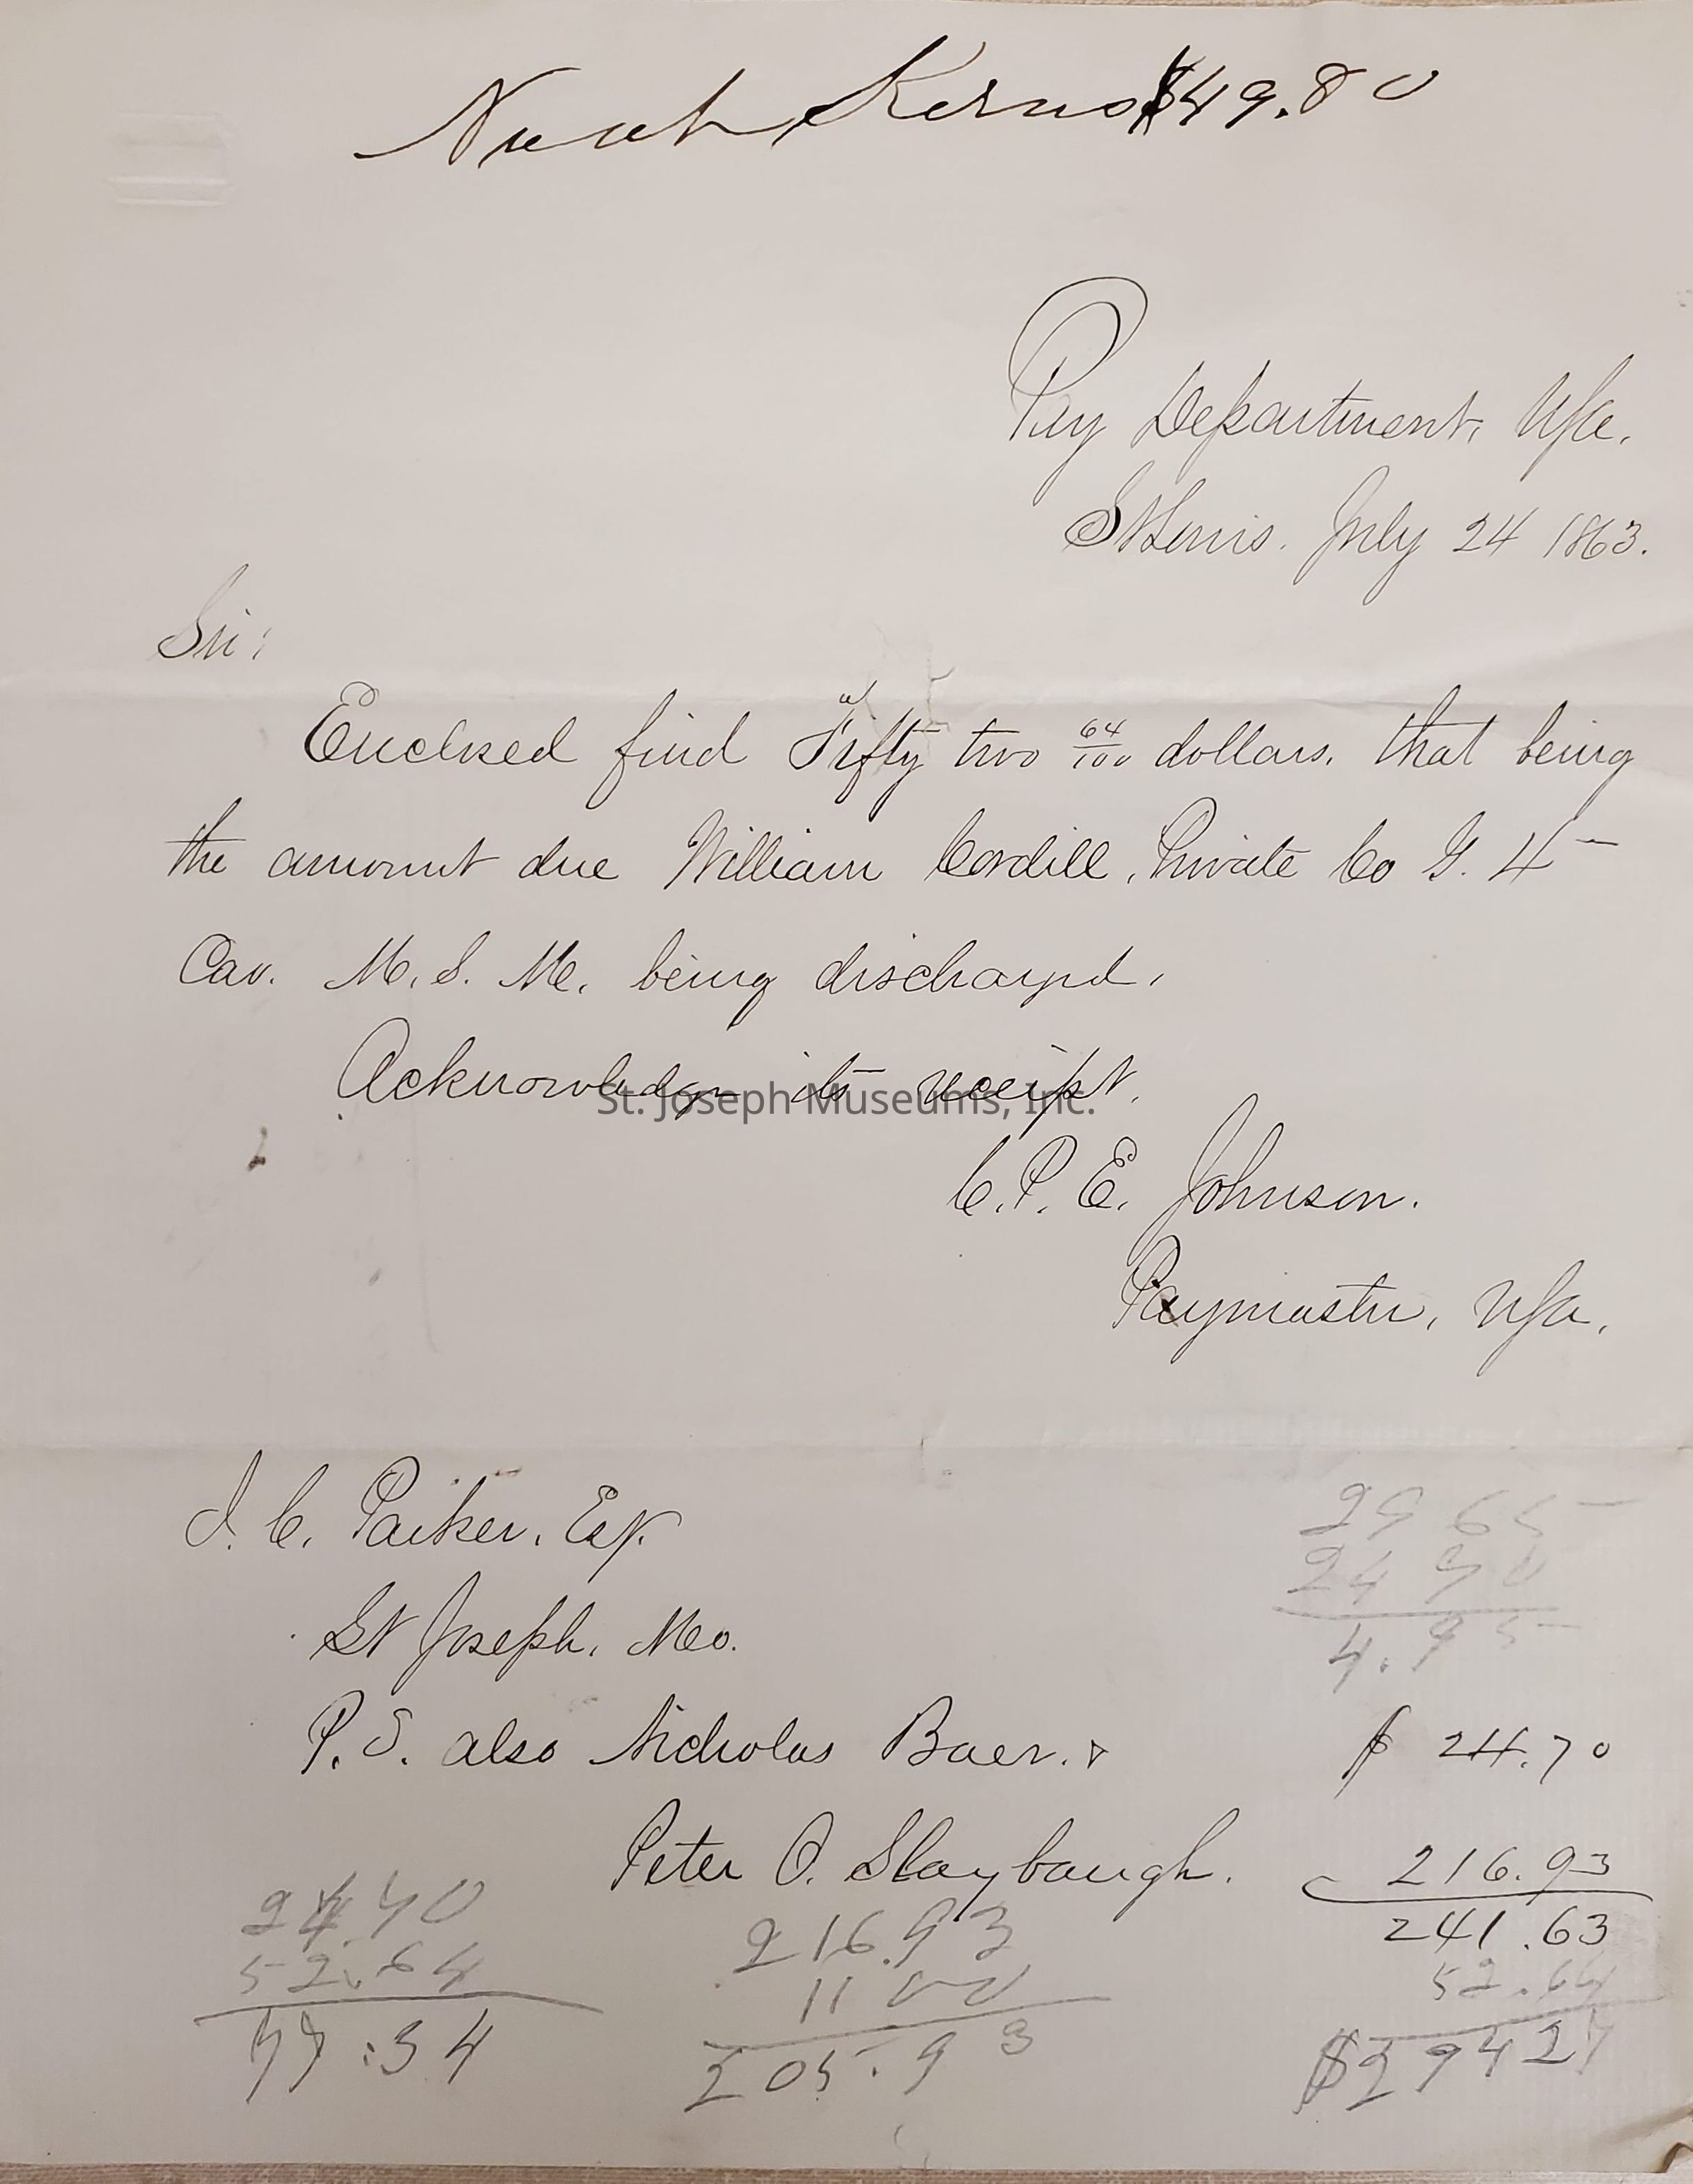 Noah Kerns $49.80
Pay Department, USA.
St Louis. July 24 1863.
Sir:
Enclosed find Fifty two 64/100 dollars. that being
the amount due William Cordill, Private Co G. 4
Cav. M. S. M. being discharged.
Acknowledge its receipt.
St. Joseph Museums, Inc.
C. P. E. Johnson.
Paymaster, USA.
J. C. Parker, Esq.
St Joseph, Mo.
29 65
24 70
4.95
P. S. also Nicholas Baer. & $ 24.70
Peter O. Slaybaugh. 216.93
241.63
52.64
$294 27
24.70
52.64
77.34
216.93
11 00
205.93